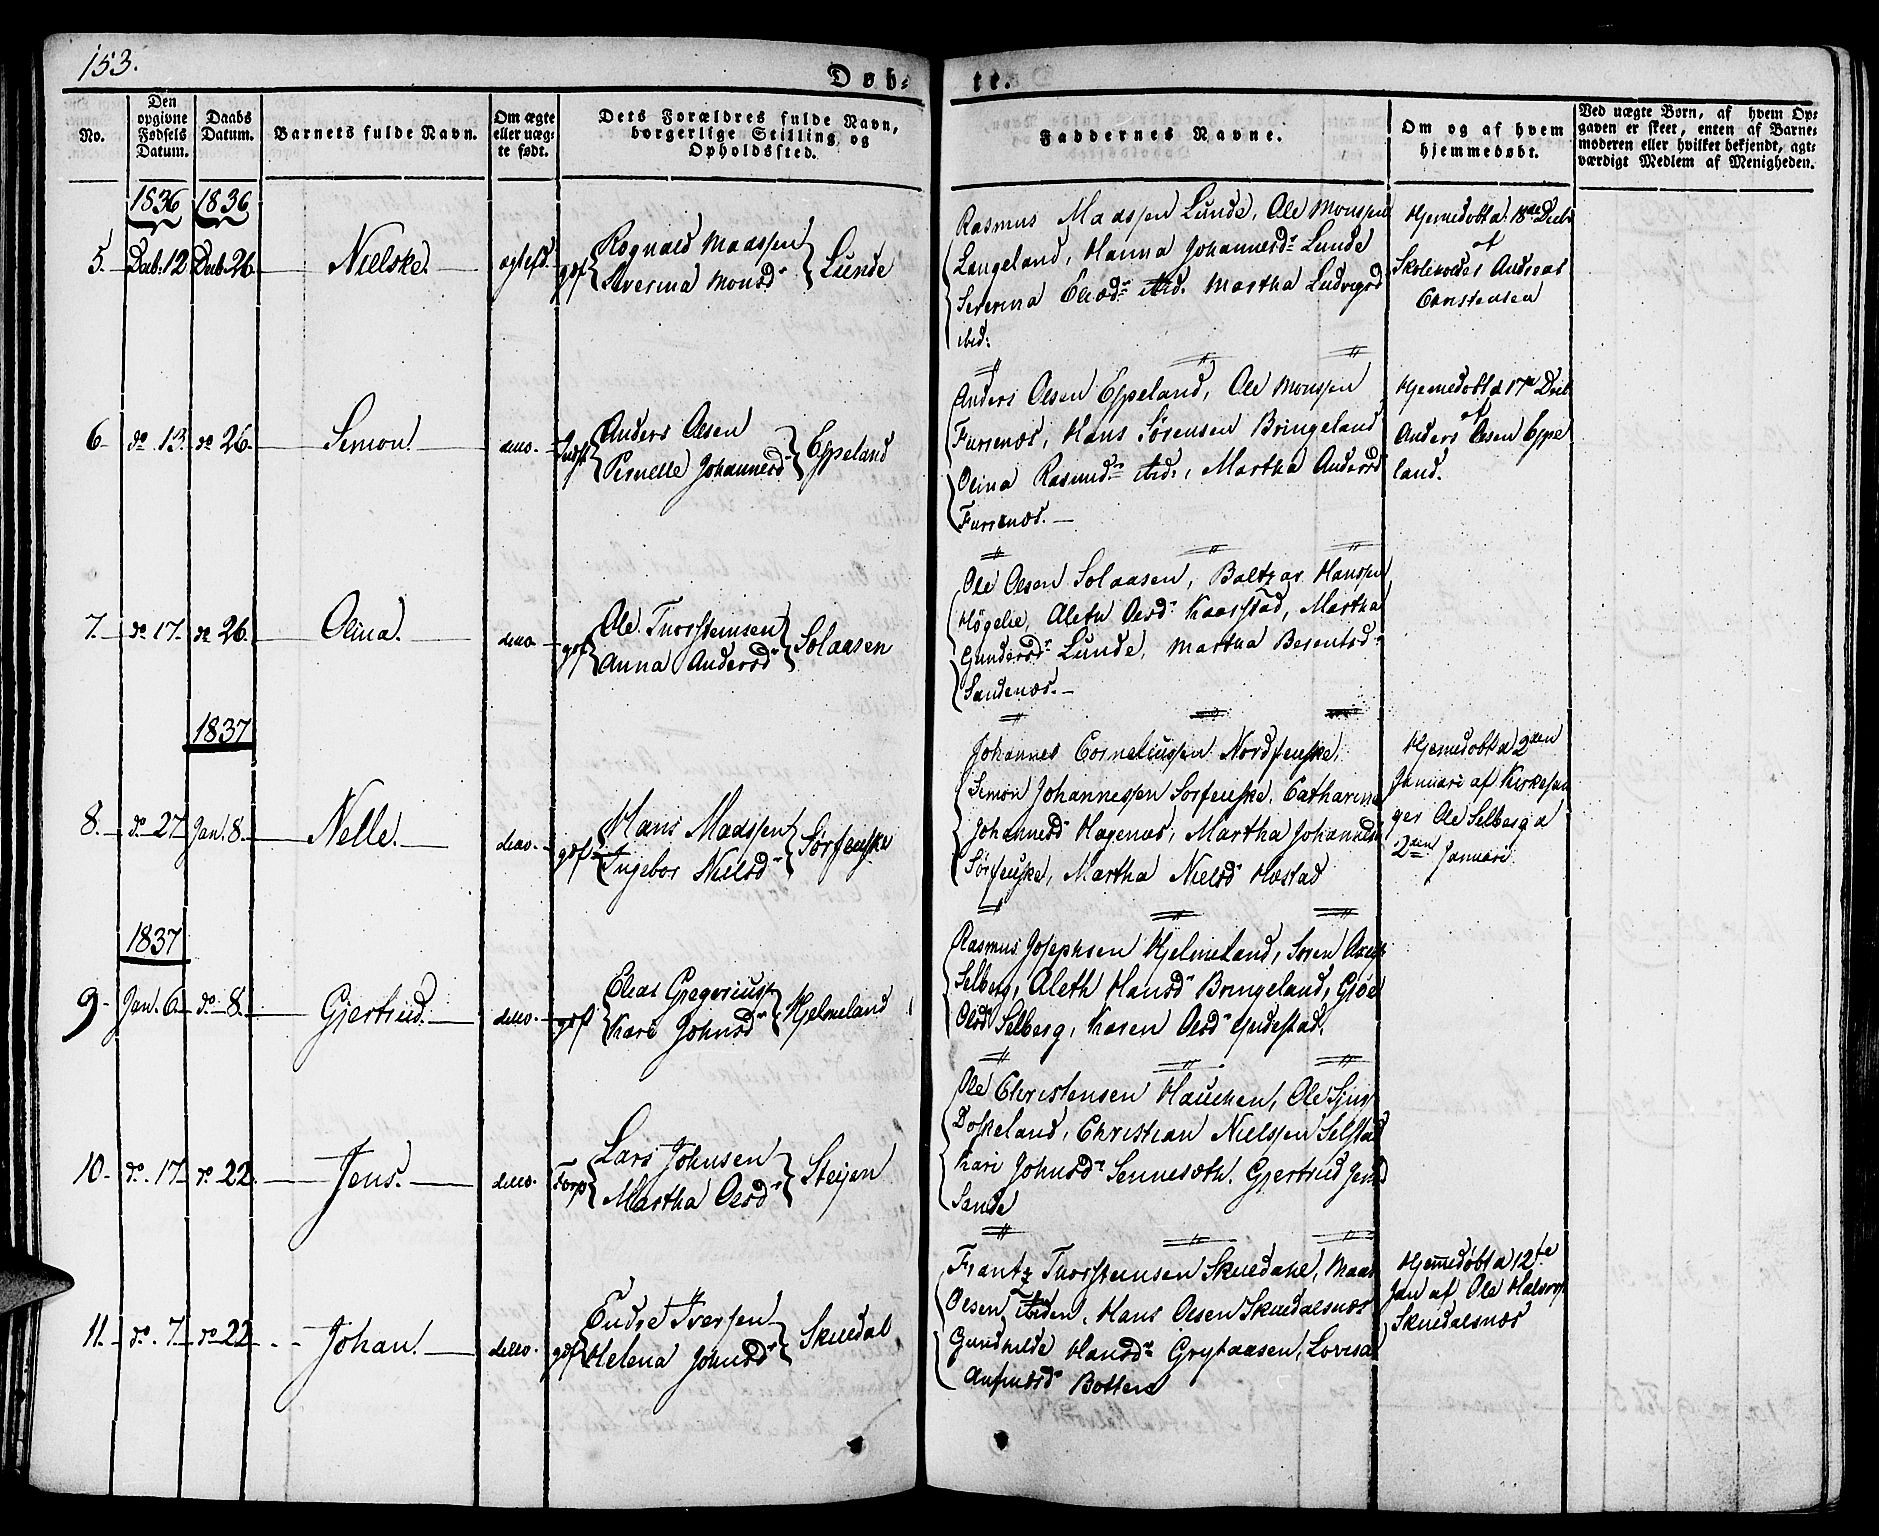 153.
Døb-
te.
No.
Den opgivne Fødsels Datum.
Daabs Datum.
Barnets fulde Navn.
Om ægte eller uæg-te født.
Dets Forældres fulde Navn, borgerlige Stilling og Opholdssted.
Faddernes Navne.
Om og af hvem hjemmedøbt.
Ved uægte Børn, af hvem Op-
gaven er skeet, enten af Barne-
moderen eller hvilket bekjendt, agt-
værdigt Medlem af Menigheden.
1836 1836
5. Decb. 12 Decb. 26 Nielske. ægtefd. gdf
Rognald Madssen
Severina Monsd
Lunde
Rasmus Madssen Lunde, Ole Monssen
Langeland, Hanna Johannesd Lunde
Severina Eliasd ibid. Martha Ludvigsd
ibid:
Hjemedøbt d. 18de Decb
af
Skoleholder Andreas
Christensen
6. do 13. do 26. Simon. ditto. Indst
Anders Olsen
Pernelle Johannesd
Eppeland
Anders Olsen Eppeland, Ole Monssen
Furrenæs, Hans Sørensen Bringeland
Olina Rasmusd ibid, Martha Andersd
Furrenæs.
Hjemedøbt d 17de Decb
af
Anders Olsen Eppe
land.
7. do 17. do 26. Olina. ditto gdf
Ole Thorsteinsen
Anna Andersd
Solaasen
Ole Olsen Solaasen, Baltzar Hanssen
Högelie, Aleth Olsd Kaarstad, Martha
Gundersd Lunde, Martha Berentsd
Sandenæs.
1837
8. do 27 Jan. 8. Nelle. ditto. gdf
Hans Madssen
Ingebor Nielsd
Sørfenske
Johannes Corneliussen Nordfenske,
Simon Johannessen Sørfenske, Catharina
Johannesd Hagenæs, Martha Johannesd
Sørfenske, Martha Nielsd Hæstad
Hjemedøbt d 2den
Januari af Kirkesan
ger Ole Selberg d
2den Januari
1837
9. Jan. 6. do 8. Gjertrud. ditto. gdf
Elias Gregoriuss
Kari Johnsd
Hjelmeland
Rasmus Josephsen Hjelmeland, Søren
Selberg, Aleth Hansd Bringeland,
Olsd Selberg, Karen Olsd Gudestad.
10. do. 17 do 22. Jens. ditto. Forp
Lars Johnsen
Martha Olsd
Steijen
Ole Christensen Hauchen, Ole
Doskeland, Christian Nielssen Selstad
Kari Johnsd Sennesæth, Gjertrud Jensd
Sande
11. do. 7 do 22 Johan. ditto. gdf
Endre Iversen
Helena Johnsd
Skuedal
Frantz Thorsteinsen Skuedahl, Mads
Olsen ibiden, Hans Olsen Skuedalsnæs
Gundhilde Hansd Grytaasen, Lovisa
Anfindsd Botten
Hjemmedöbt d 12te
Jan af Ole Halvors
Skuedalsnæs